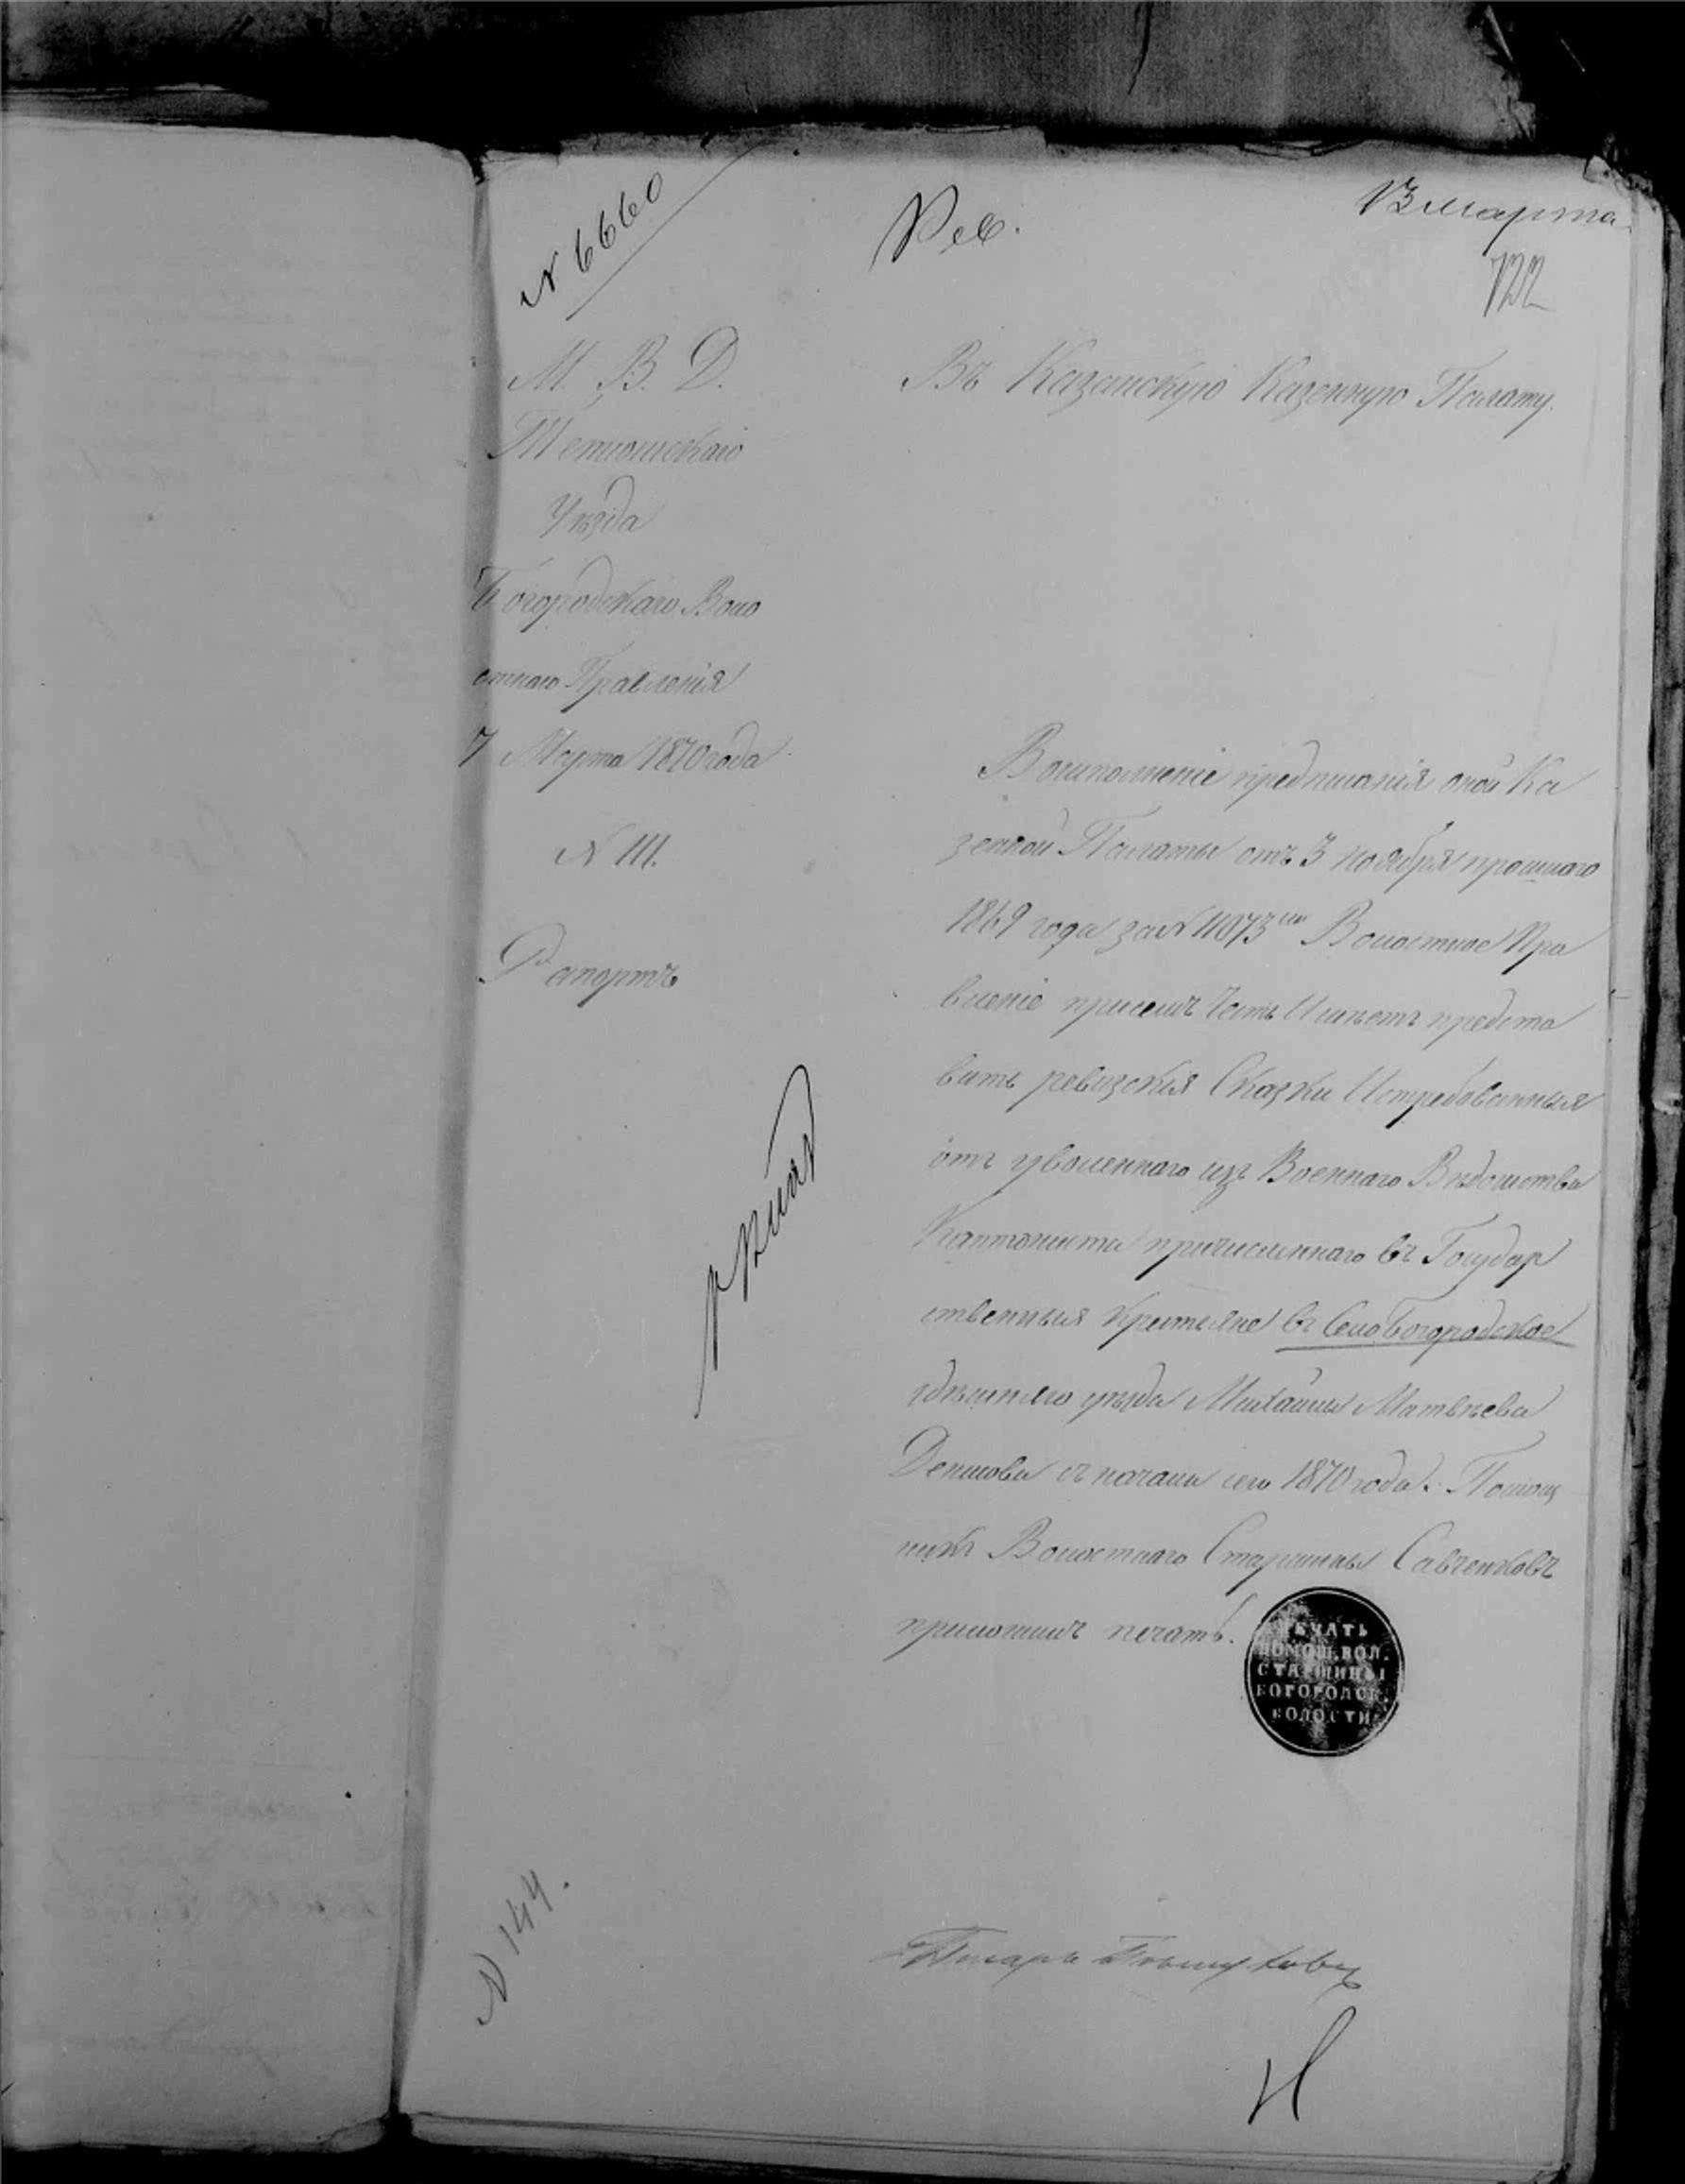 N 6660
Рев.
13 марта
132
М. В. Д.
Тетюшскаго
Уѣзда
Богородскаго Воло
стнаго Правленія
7 Марта 1870 года
N 111.
Рапортъ
Въ Казанскую Казенную Палату.
Восполненіе предписанія оной Ка
зенной Палаты отъ 3 ноября прошлаго
1869 года за N 11073 Волостное Пра
вленіе присемъ Честь Имѣетъ предста
вить ревизскія Сказки Истребованныя
отъ уволеннаго изъ Военнаго Вѣдомства
Кантониста причисленнаго въ Государ
ственныя Крестьяне въ Село Богородское
здѣшняго уѣзда Михайлы Матвѣева
Денисова съ начала сего 1870 года. Помощ
никъ Волостнаго Старшины Савченковъ
приложилъ печать.
ПЕЧАТЬ
ПОМОЩ. ВОЛ.
СТАРШИНЫ
БОГОРОДСК.
ВОЛОСТИ
N 144.
Писарь